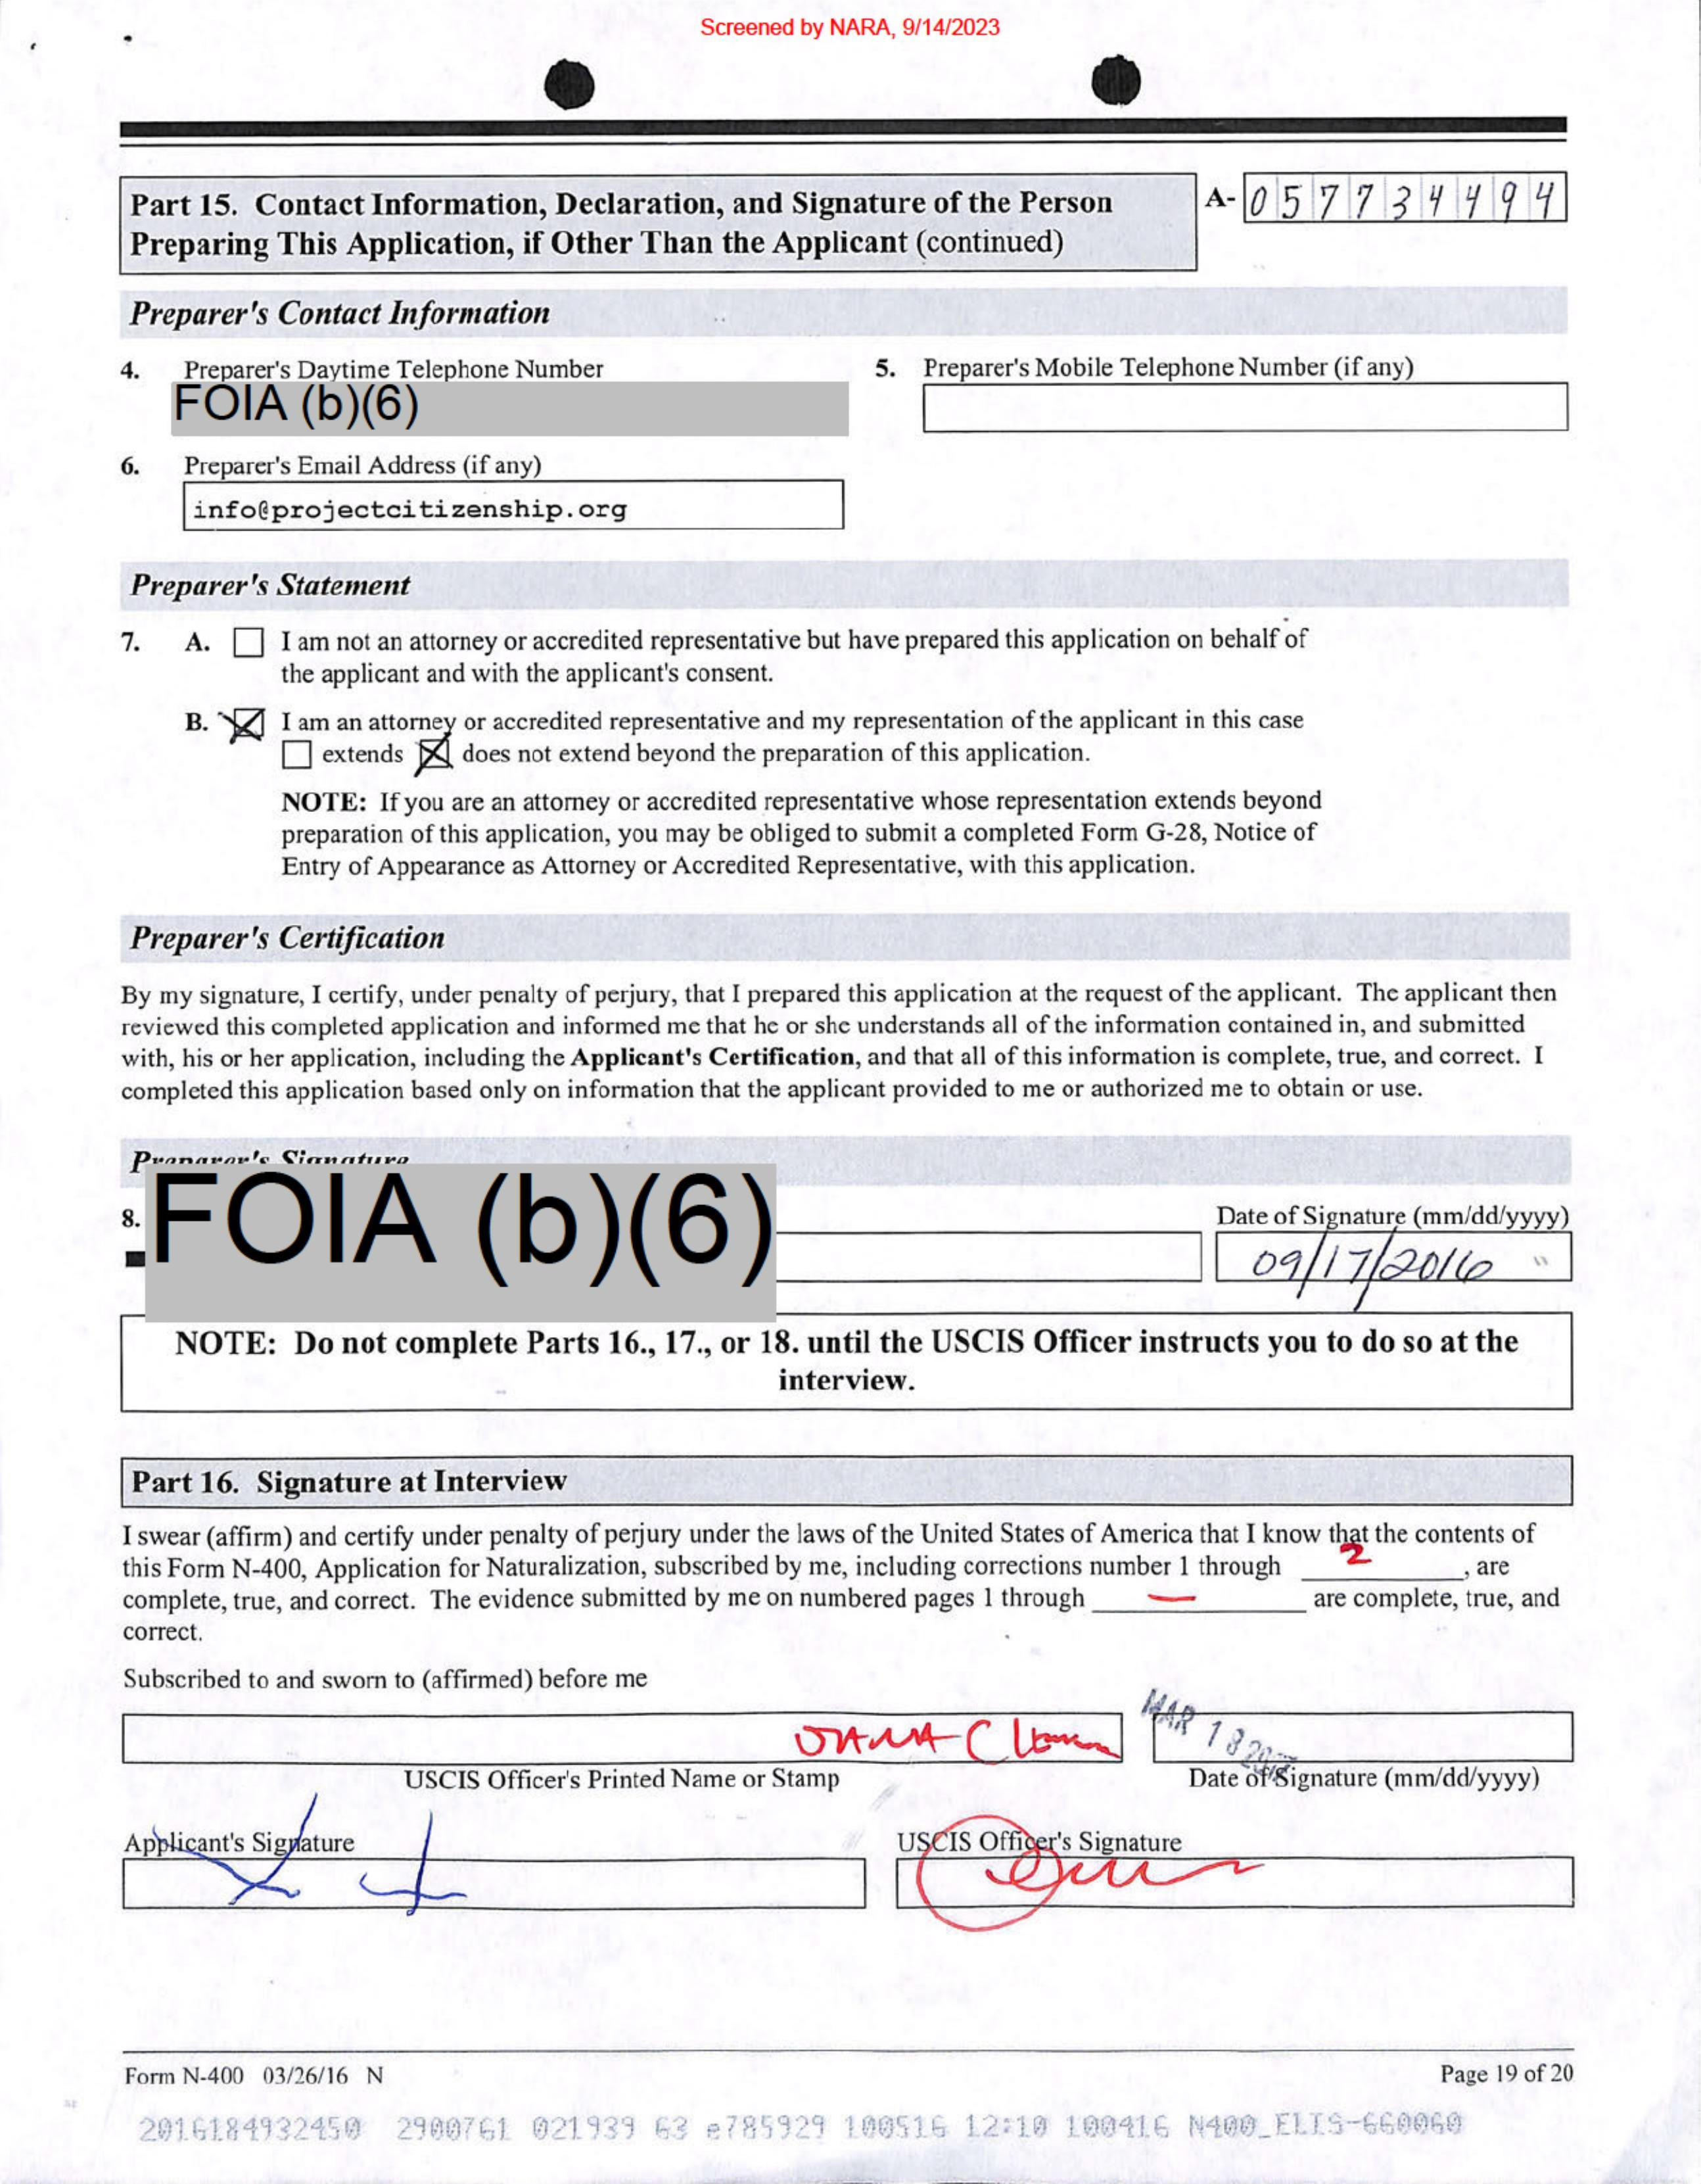 Screened by NARA, 9/14/2023
Part 15. Contact Information, Declaration, and Signature of the Person
Preparing This Application, if Other Than the Applicant (continued)
A- 057734494
Preparer's Contact Information
4. Preparer's Daytime Telephone Number
FOIA (b)(6)
5. Preparer's Mobile Telephone Number (if any)
6. Preparer's Email Address (if any)
info@projectcitizenship.org
Preparer's Statement
7. A. I am not an attorney or accredited representative but have prepared this application on behalf of
the applicant and with the applicant's consent.
B. I am an attorney or accredited representative and my representation of the applicant in this case
extends does not extend beyond the preparation of this application.
NOTE: If you are an attorney or accredited representative whose representation extends beyond
preparation of this application, you may be obliged to submit a completed Form G-28, Notice of
Entry of Appearance as Attorney or Accredited Representative, with this application.
Preparer's Certification
By my signature, I certify, under penalty of perjury, that I prepared this application at the request of the applicant. The applicant then
reviewed this completed application and informed me that he or she understands all of the information contained in, and submitted
with, his or her application, including the Applicant's Certification, and that all of this information is complete, true, and correct. I
completed this application based only on information that the applicant provided to me or authorized me to obtain or use.
Preparer's Signature
8. FOIA (b)(6)
Date of Signature (mm/dd/yyyy)
09/17/2016
NOTE: Do not complete Parts 16., 17., or 18. until the USCIS Officer instructs you to do so at the
interview.
Part 16. Signature at Interview
I swear (affirm) and certify under penalty of perjury under the laws of the United States of America that I know that the contents of
this Form N-400, Application for Naturalization, subscribed by me, including corrections number 1 through 2, are
complete, true, and correct. The evidence submitted by me on numbered pages 1 through — are complete, true, and
correct.
Subscribed to and sworn to (affirmed) before me
MAR 13
USCIS Officer's Printed Name or Stamp
Date of Signature (mm/dd/yyyy)
Applicant's Signature
USCIS Officer's Signature
Form N-400 03/26/16 N
Page 19 of 20
2016184932450 2900761 021939 63 e785929 100516 12:10 100416 N400_ELIS-660060